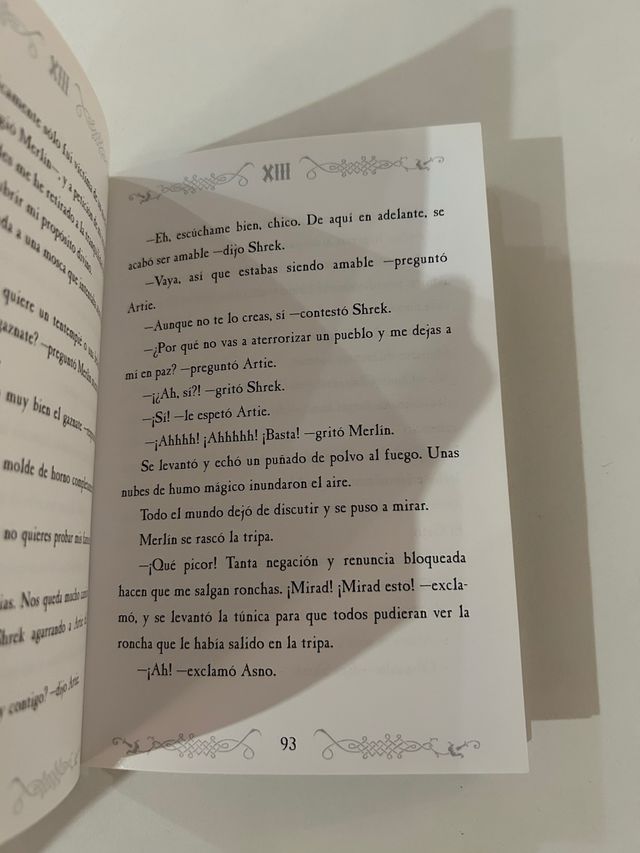 XIII
icamente sólo fui víctima de
gió Merlín—, y a petición de
les me he retirado a la
brir mi propósito divino.
da a una mosca que
quiere un tentempié o
gaznate? —preguntó Merlín
muy bien el gaznate
molde de horno
no quieres probar mis
ias. Nos queda mucho
Shrek agarrando a Artie
y contigo? —dijo Artie
XIII
—Eh, escúchame bien, chico. De aquí en adelante, se
acabó ser amable —dijo Shrek.
—Vaya, así que estabas siendo amable —preguntó
Artie.
—Aunque no te lo creas, sí —contestó Shrek.
—¿Por qué no vas a aterrorizar un pueblo y me dejas a
mí en paz? —preguntó Artie.
—¡¿Ah, sí?! —gritó Shrek.
—¡Sí! —le espetó Artie.
—¡Ahhhh! ¡Ahhhhh! ¡Basta! —gritó Merlín.
Se levantó y echó un puñado de polvo al fuego. Unas
nubes de humo mágico inundaron el aire.
Todo el mundo dejó de discutir y se puso a mirar.
Merlín se rascó la tripa.
—¡Qué picor! Tanta negación y renuncia bloqueada
hacen que me salgan ronchas. ¡Mirad! ¡Mirad esto! —excla-
mó, y se levantó la túnica para que todos pudieran ver la
roncha que le había salido en la tripa.
—¡Ah! —exclamó Asno.
93